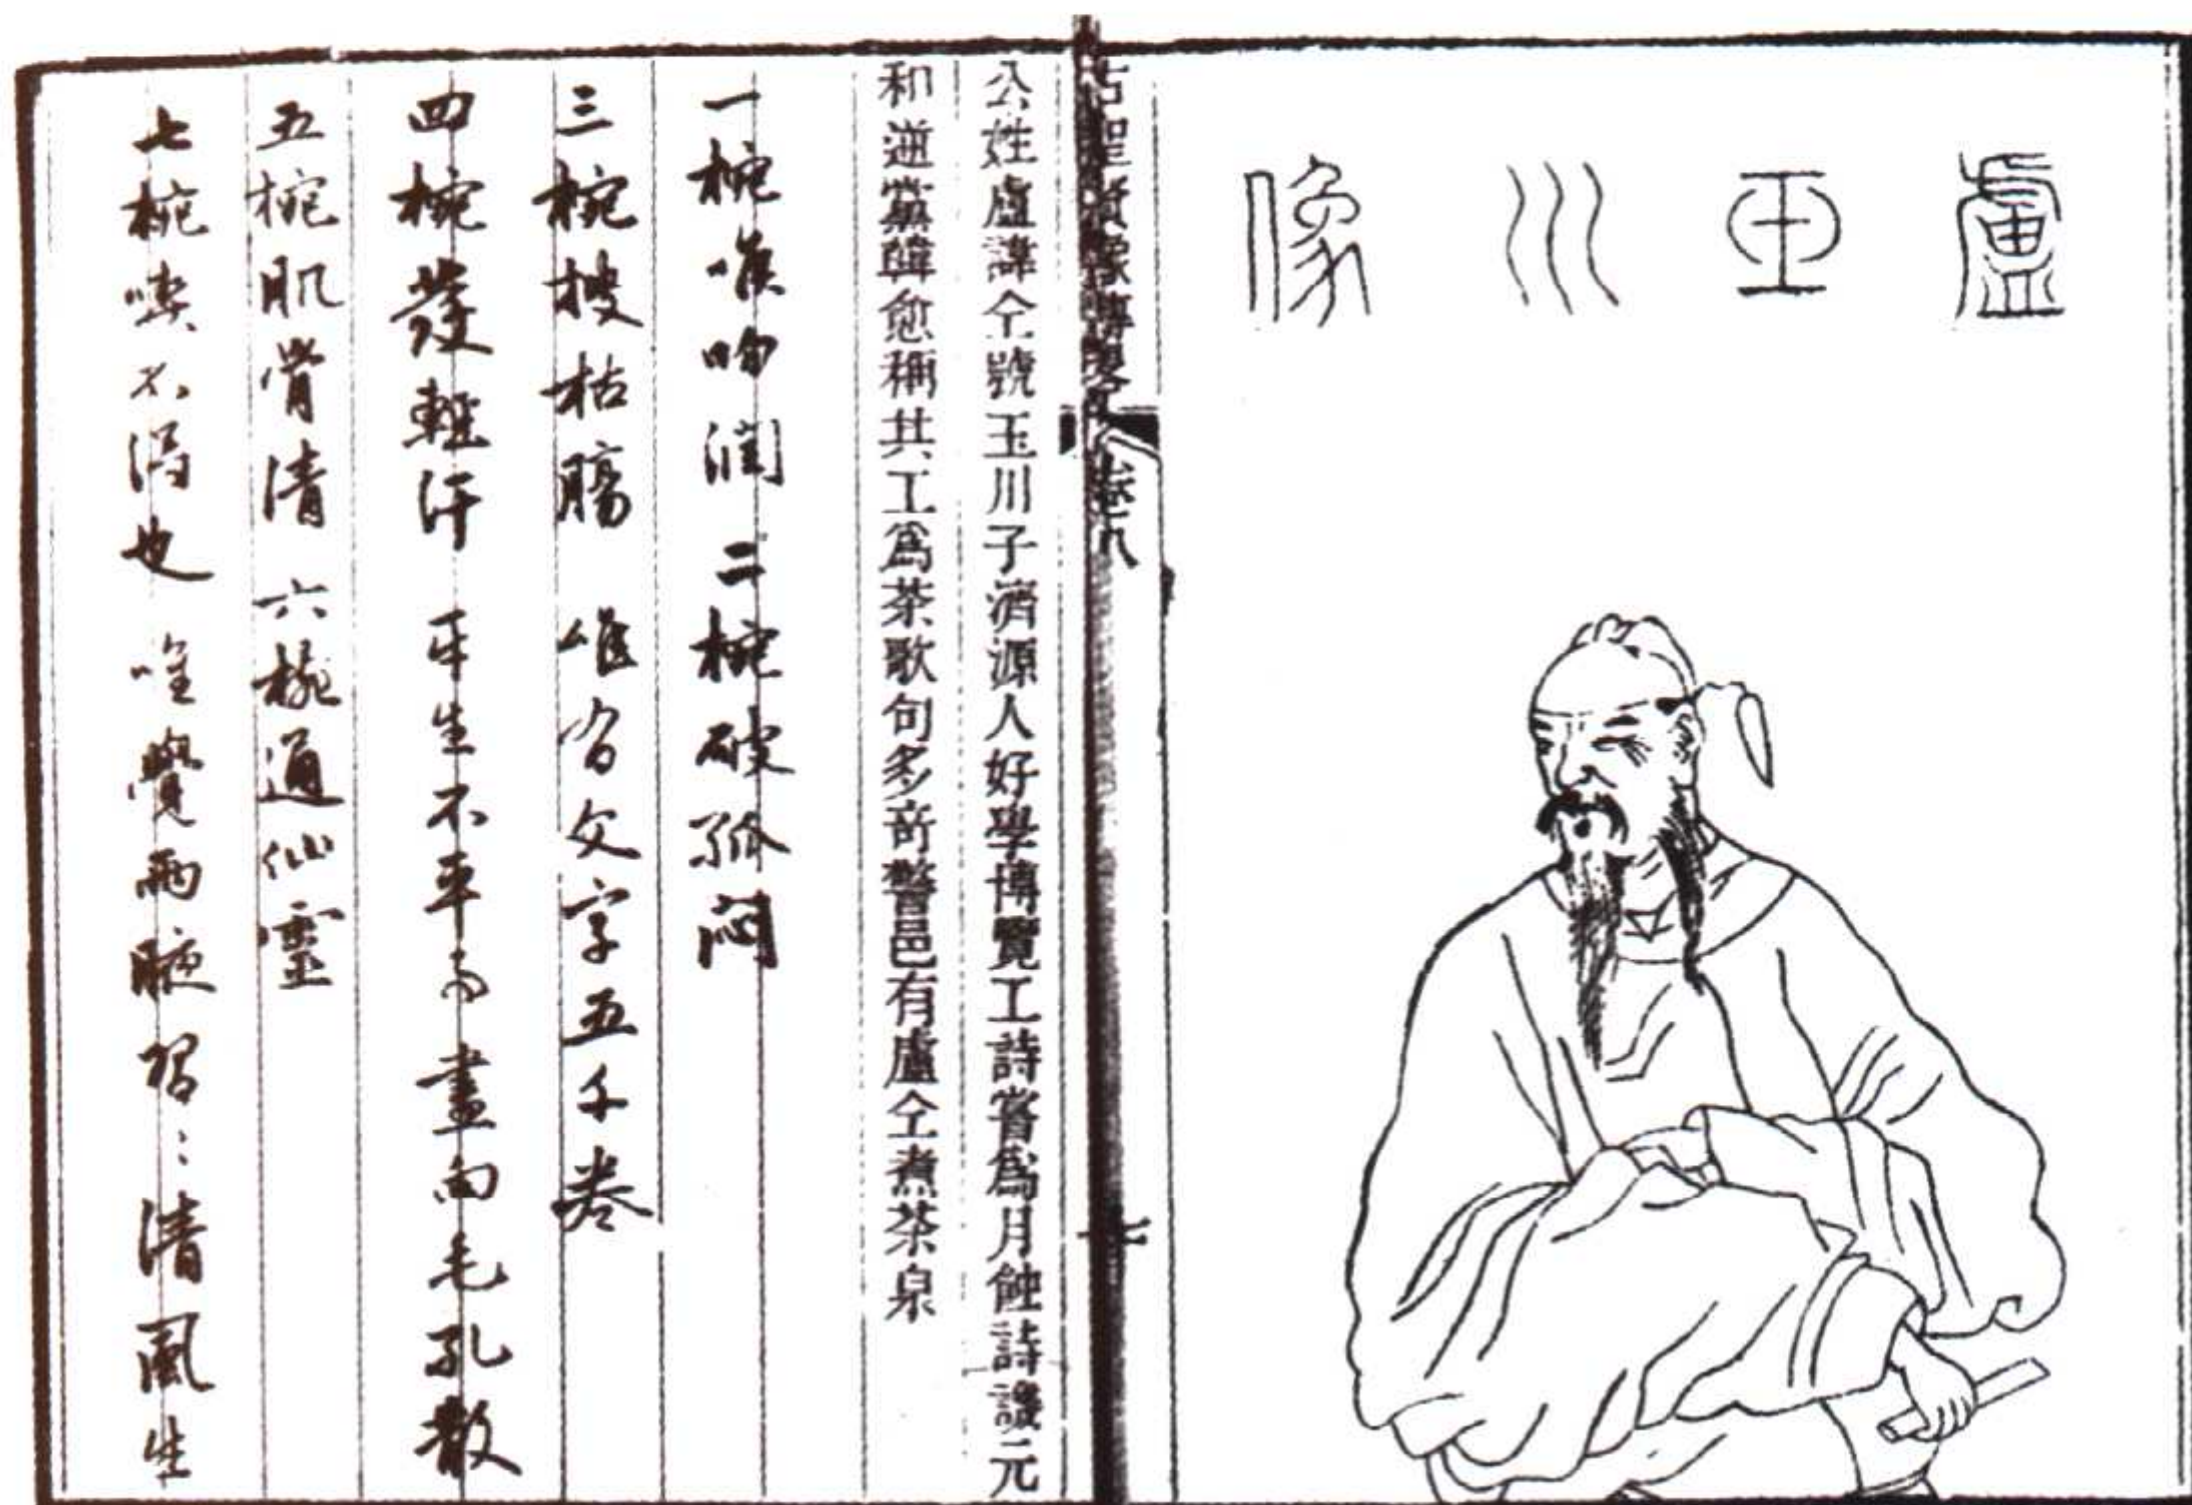 盧玉川像
古聖賢像傳畧 卷八
七
公姓盧諱仝號玉川子濟源人好學博覽工詩嘗爲月蝕詩譏元
和逆黨韓愈稱其工爲茶歌句多奇警邑有盧仝煮茶泉
一椀喉吻潤 二椀破孤悶
三椀搜枯腸 唯有文字五千卷
四椀發輕汗 平生不平事盡向毛孔散
五椀肌骨清 六椀通仙靈
七椀喫不得也 唯覺兩腋習〻清風生